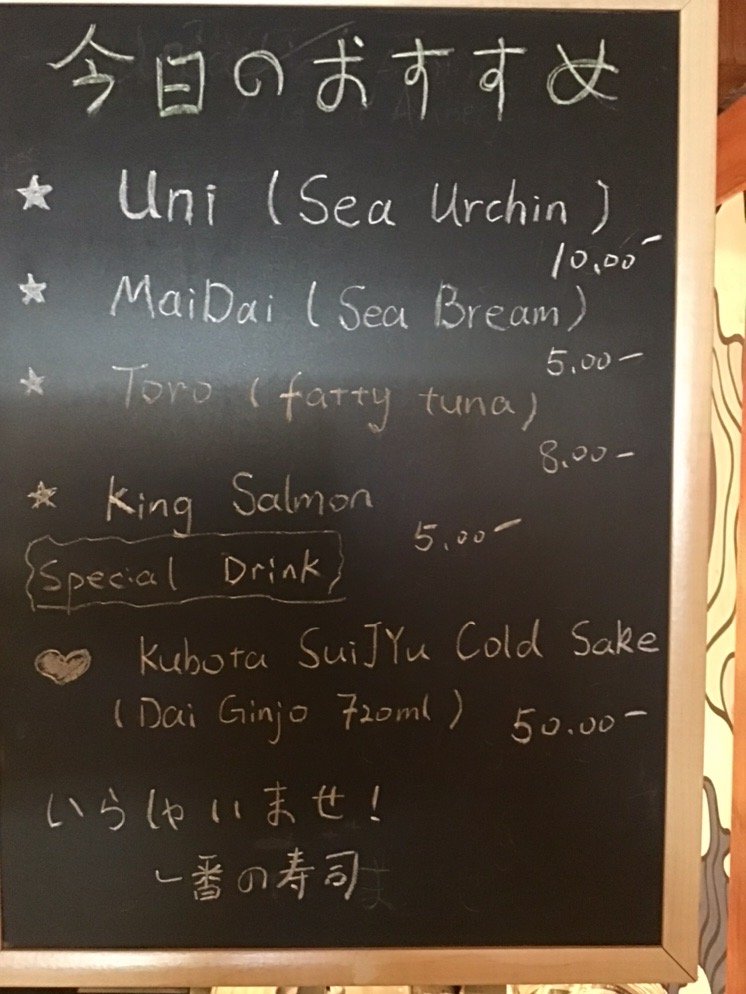 今日のおすすめ
★ Uni (Sea Urchin)
10.00-
★ MaiDai (Sea Bream)
5.00-
★ Toro (fatty tuna)
8.00-
★ King Salmon
5.00-
Special Drink
♥ Kubota SuiJYu Cold Sake
(Dai Ginjo 720ml) 50.00-
いらしゃいませ!
一番の寿司